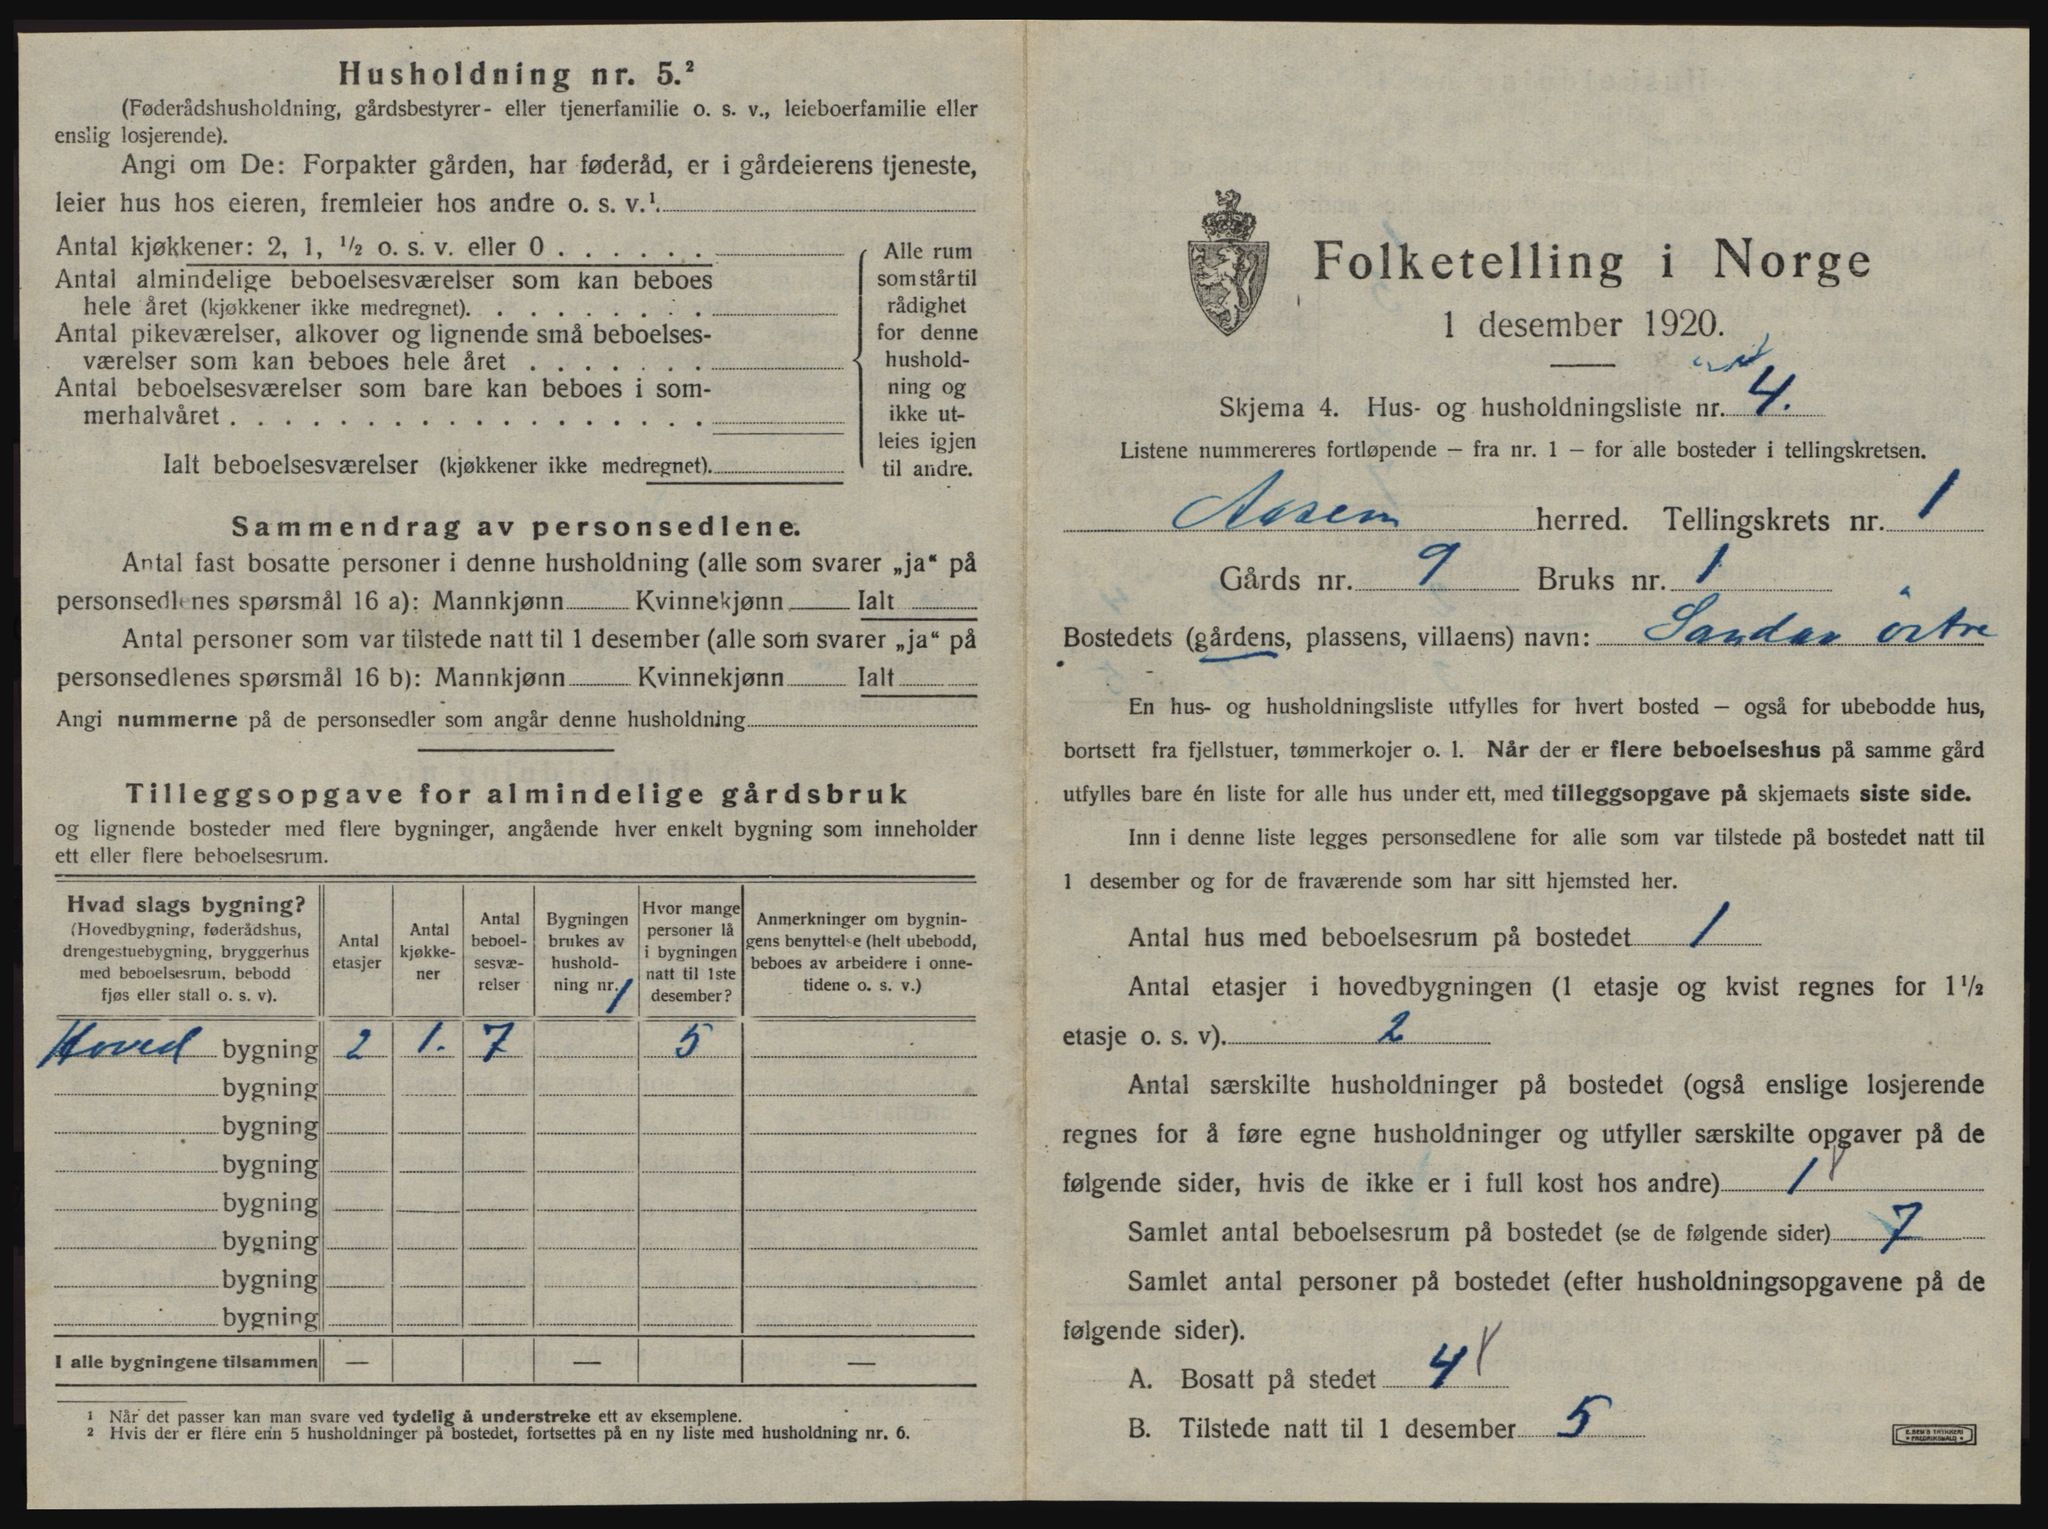 Husholdning nr. 5.²
(Føderådshusholdning, gårdsbestyrer- eller tjenerfamilie o. s. v., leieboerfamilie eller
enslig losjerende).
Angi om De: Forpakter gården, har føderåd, er i gårdeierens tjeneste,
leier hus hos eieren, fremleier hos andre o. s. v.¹.
Antal kjøkkener: 2, 1, ½ o. s. v. eller 0
Antal almindelige beboelsesværelser som kan beboes
hele året (kjøkkener ikke medregnet).
Antal pikeværelser, alkover og lignende små beboelses-
værelser som kan beboes hele året
Antal beboelsesværelser som bare kan beboes i som-
merhalvåret
Ialt beboelsesværelser (kjøkkener ikke medregnet).
Alle rum
som står til
rådighet
for denne
hushold-
ning og
ikke ut-
leies igjen
til andre.
Sammendrag av personsedlene.
Antal fast bosatte personer i denne husholdning (alle som svarer „ja“ på
personsedlenes spørsmål 16 a): Mannkjønn Kvinnekjønn Ialt
Antal personer som var tilstede natt til 1 desember (alle som svarer „ja“ på
personsedlenes spørsmål 16 b): Mannkjønn Kvinnekjønn Ialt
Angi nummerne på de personsedler som angår denne husholdning
Tilleggsopgave for almindelige gårdsbruk
og lignende bosteder med flere bygninger, angående hver enkelt bygning som inneholder
ett eller flere beboelsesrum.
Hvad slags bygning?
(Hovedbygning, føderådshus,
drengestuebygning, bryggerhus
med beboelsesrum, bebodd
fjøs eller stall o. s. v).
Antal
etasjer
Antal
kjøkke-
ner
Antal
beboel-
sesvæ-
relser
Bygningen
brukes av
hushold-
ning nr. 1
Hvor mange
personer lå
i bygningen
natt til 1ste
desember?
Anmerkninger om bygnin-
gens benyttelse (helt ubebodd,
beboes av arbeidere i onne-
tidene o. s. v.)
Hoved bygning 2 1. 7 5
bygning
bygning
bygning
bygning
bygning
bygning
bygning
I alle bygningene tilsammen — — —
¹ Når det passer kan man svare ved tydelig å understreke ett av eksemplene.
² Hvis der er flere enn 5 husholdninger på bostedet, fortsettes på en ny liste med husholdning nr. 6.
Folketelling i Norge
1 desember 1920.
Skjema 4. Hus- og husholdningsliste nr. 4.
Listene nummereres fortløpende — fra nr. 1 — for alle bosteder i tellingskretsen.
Aasem herred. Tellingskrets nr. 1
Gårds nr. 9 Bruks nr. 1
Bostedets (gårdens, plassens, villaens) navn: Sandar östre
En hus- og husholdningsliste utfylles for hvert bosted — også for ubebodde hus,
bortsett fra fjellstuer, tømmerkojer o. l. Når der er flere beboelseshus på samme gård
utfylles bare én liste for alle hus under ett, med tilleggsopgave på skjemaets siste side.
Inn i denne liste legges personsedlene for alle som var tilstede på bostedet natt til
1 desember og for de fraværende som har sitt hjemsted her.
Antal hus med beboelsesrum på bostedet 1
Antal etasjer i hovedbygningen (1 etasje og kvist regnes for 1½
etasje o. s. v). 2
Antal særskilte husholdninger på bostedet (også enslige losjerende
regnes for å føre egne husholdninger og utfyller særskilte opgaver på de
følgende sider, hvis de ikke er i full kost hos andre) 1
Samlet antal beboelsesrum på bostedet (se de følgende sider) 7
Samlet antal personer på bostedet (efter husholdningsopgavene på de
følgende sider).
A. Bosatt på stedet 4
B. Tilstede natt til 1 desember 5